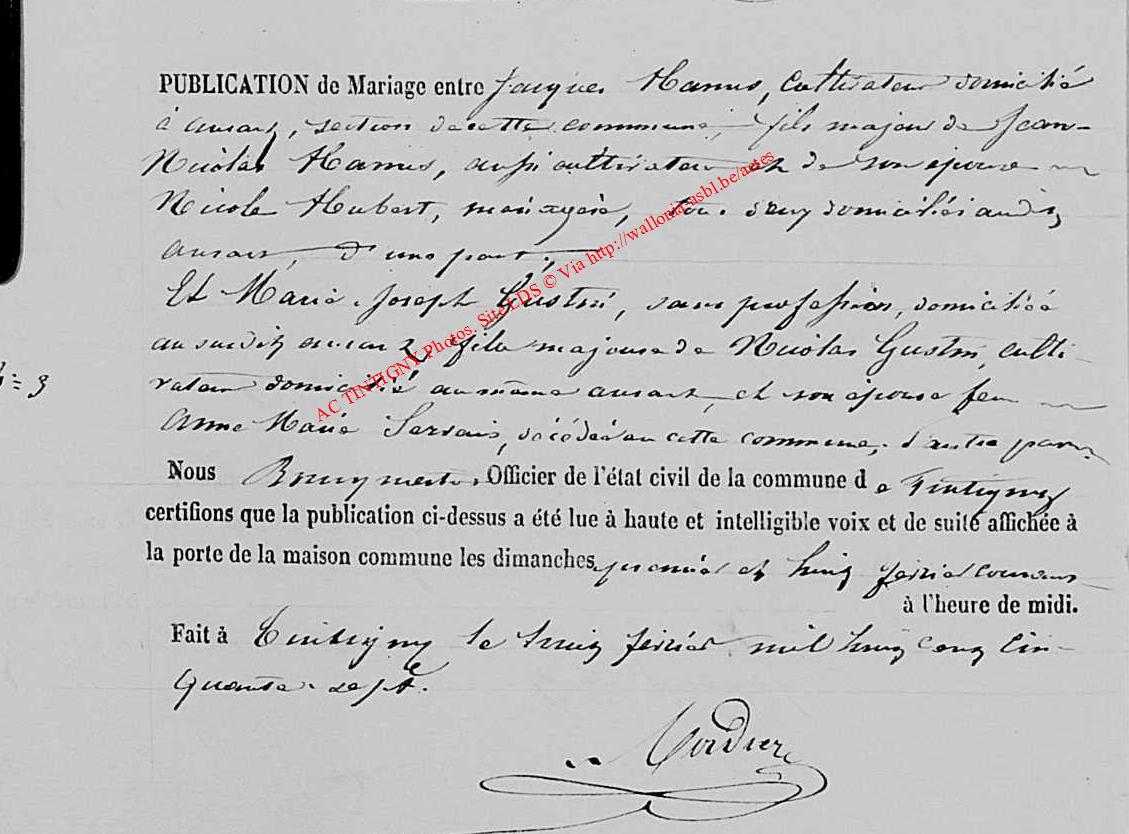 PUBLICATION de Mariage entre Jacques Hanus, Cultivateur domicilié
à ansart, section de cette commune, fils majeur de Jean-
Nicolas Hanus, aussi cultivateur et de son épouse
Nicole Hubert, ménagère, tous deux domiciliés audit
ansart, d'une part;
Et Marie Joseph Gustin, sans profession, domiciliée
au susdit ansart, fille majeure de Nicolas Gustin, culti-
vateur domicilié au même ansart, et son épouse feu
Anne Marie Servais, décédée en cette commune, d'autre part.
N: 3
AC TINTIGNY Photos. Site LDS © Via http://wallonia-asbl.be/actes
Nous Bourgmestre, Officier de l'état civil de la commune de Tintigny
certifions que la publication ci-dessus a été lue à haute et intelligible voix et de suite affichée à
la porte de la maison commune les dimanches premier et huit février courant
à l'heure de midi.
Fait à Tintigny le huit février mil huit cent cin-
quante-sept.